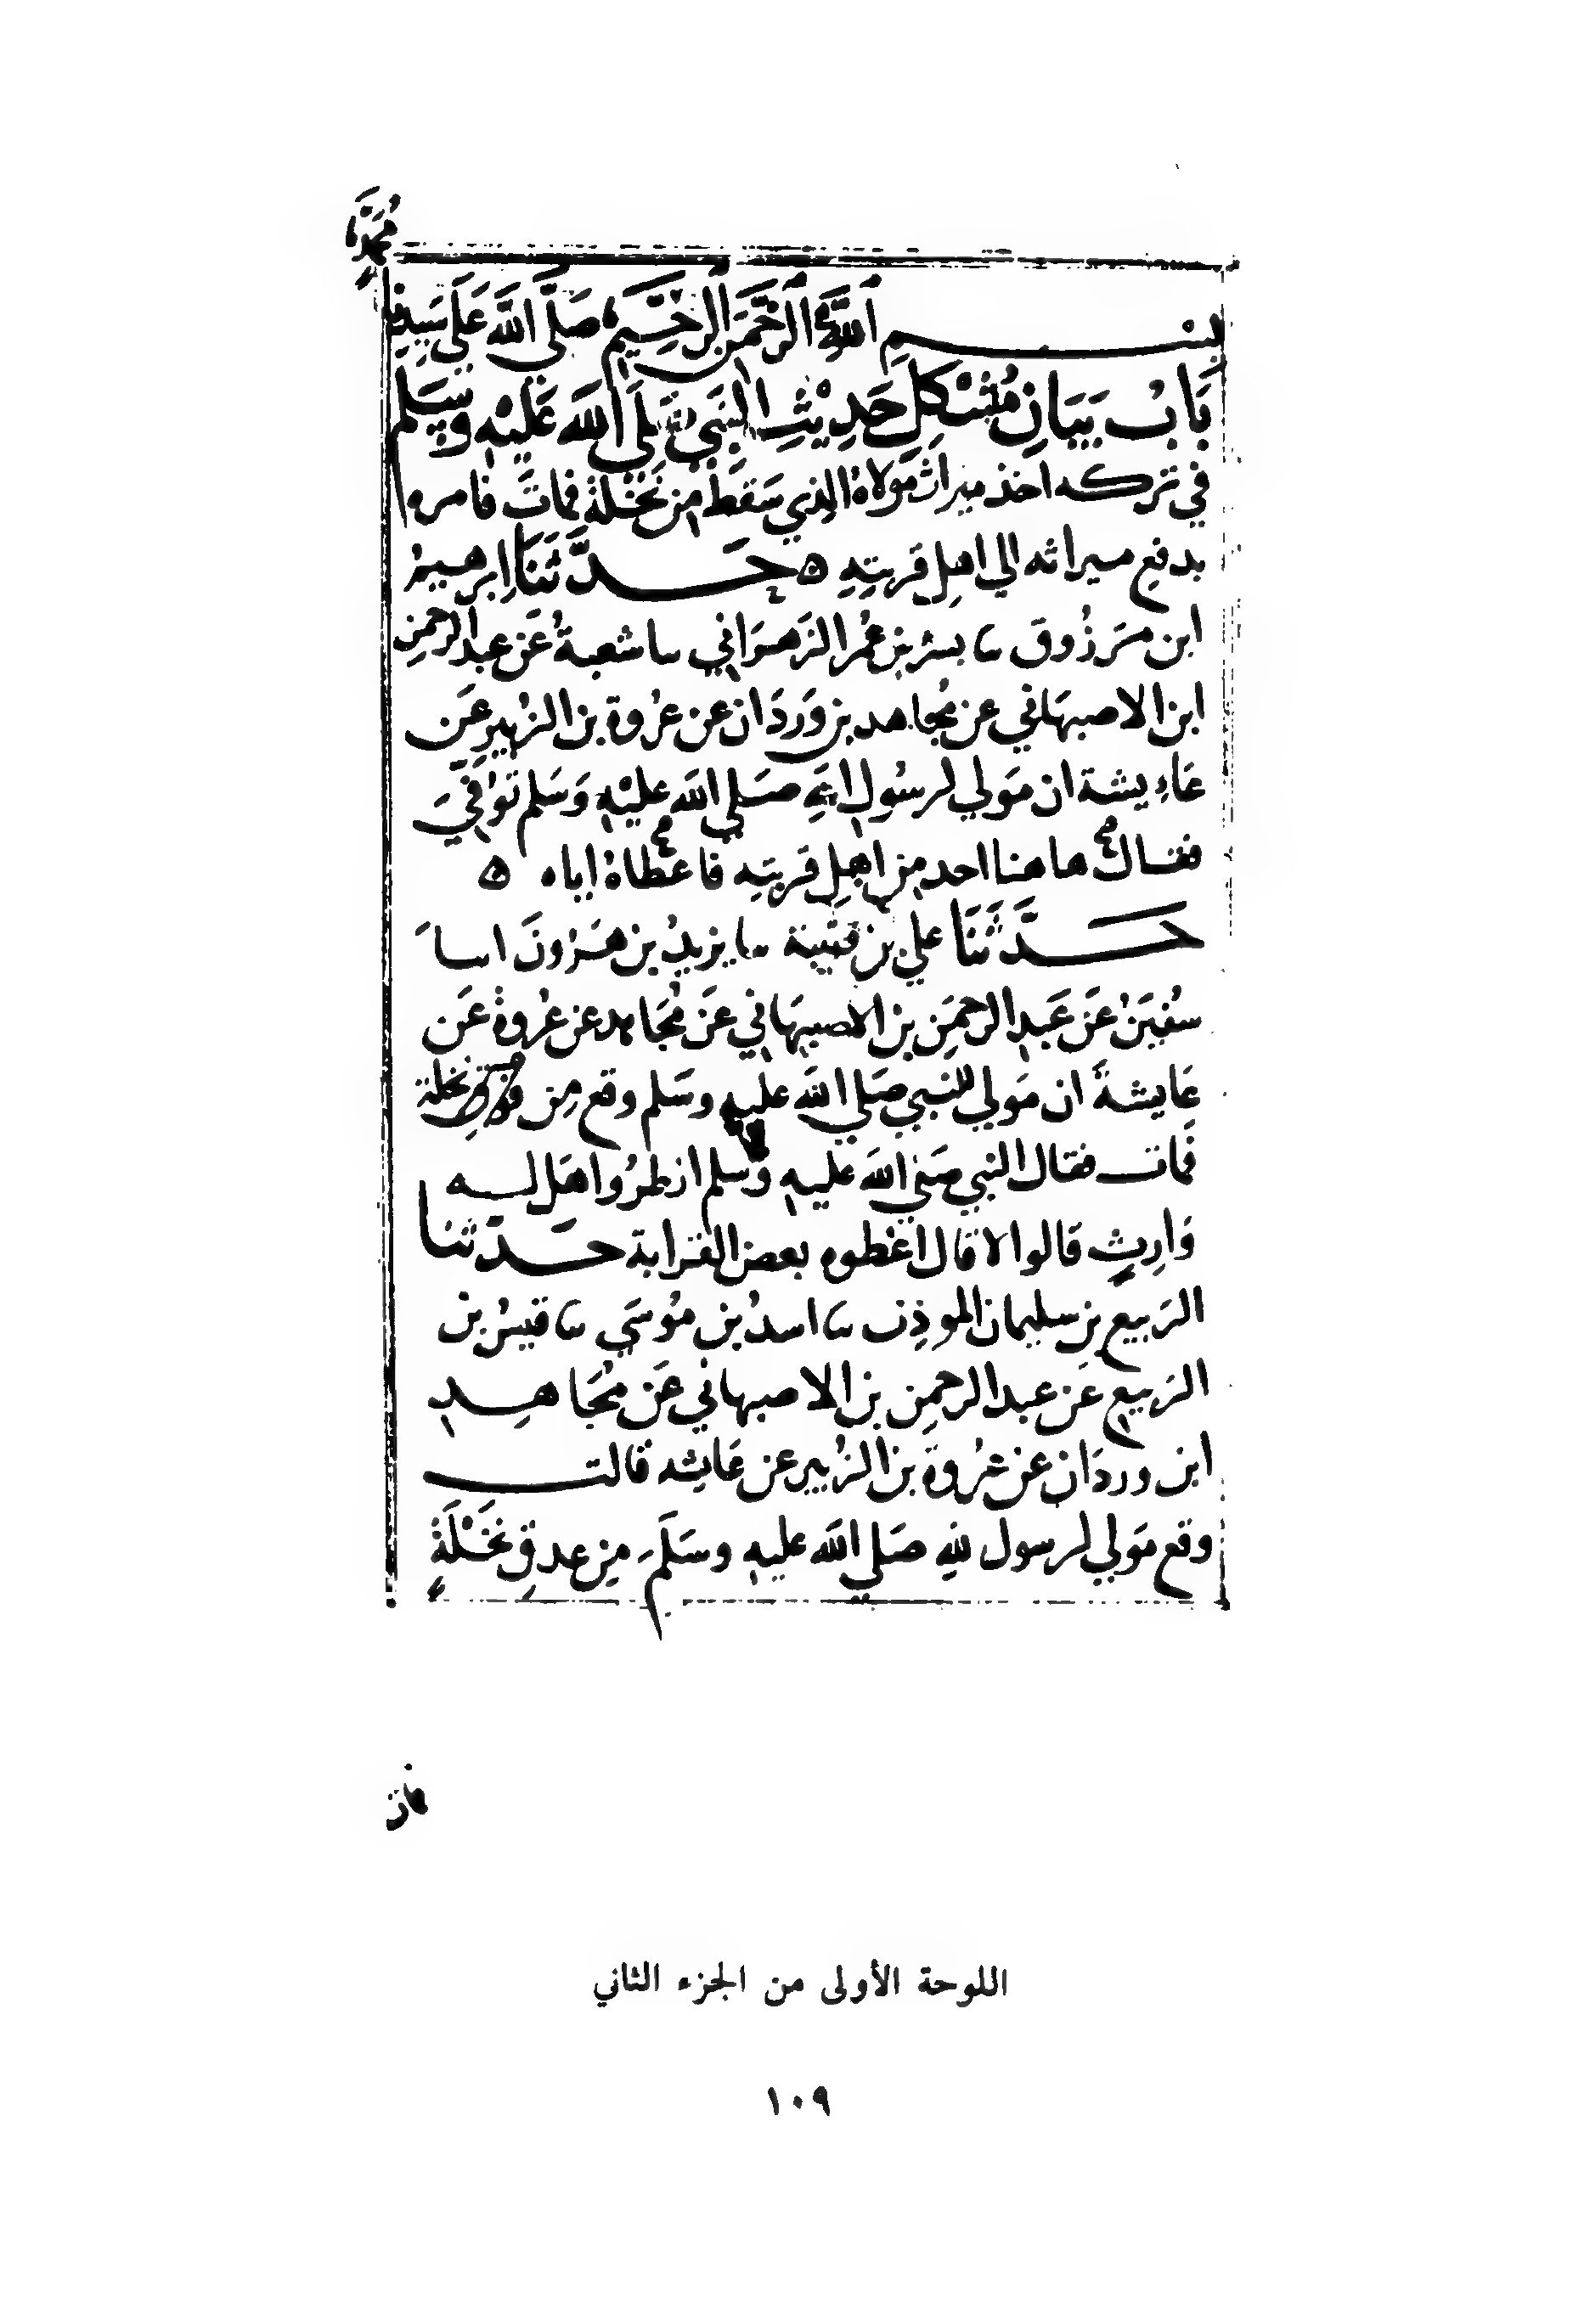 بسم الله الرحمن الرحيم صلى الله على سيدنا محمد
باب بيان مشكل حديث النبي صلى الله عليه وسلم
في تركه اخذ ميراث مولاه الذي سقط من نخلة فمات فامره
بدفع ميراثه الي اهل قريته ه حدثنا ابرهيم
ابن مرزوق سا بشر بن عمر الزهراني سا شعبة عن عبد الرحمن
ابن الاصبهاني عن مجاهد بن وردان عن عروة بن الزبير عن
عايشة ان مولي لرسول الله صلي الله عليه وسلم توفي
فقال هاهنا احد من اهل قريته فاعطاه اياه ه
حدثنا علي بن شيبة سا يزيد بن هرون اسا
سفين عن عبد الرحمن بن الاصبهاني عن مجاهد عن عروة عن
عايشة ان مولي للنبي صلي الله عليه وسلم وقع من نخلة
فمات فقال النبي صلي الله عليه وسلم انظروا هل له
وارث قالوا لا قال اعطوه بعض القرابة حدثنا
الربيع بن سليمان الموذن سا اسد بن موسي سا قيس بن
الربيع عن عبد الرحمن بن الاصبهاني عن مجاهد
ابن وردان عن عروة بن الزبير عن عايشه قالت
وقع مولي لرسول الله صلي الله عليه وسلم من عدق نخلة
فمات
اللوحة الأولى من الجزء الثاني
١٠٩